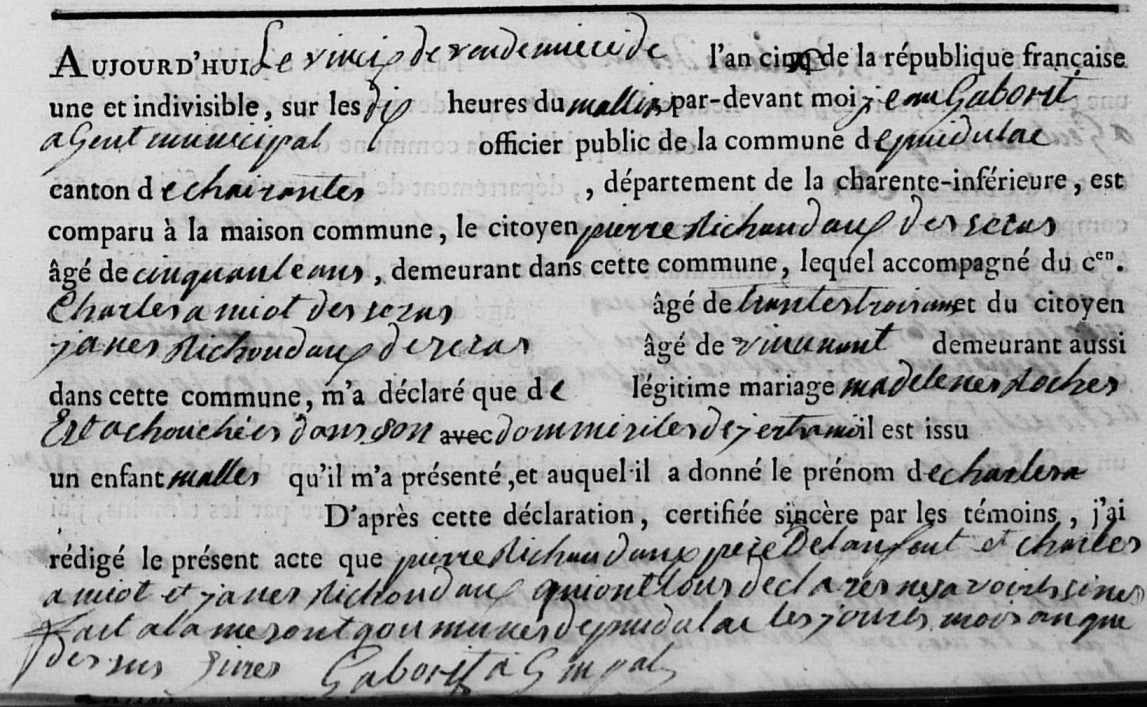 AUJOURD'HUI Le vincip de vendemiere de l'an cinq de la république française
une et indivisible, sur les dix heures du mattin par-devant moi jean Gaborit
agent municipal officier public de la commune de puidulac
canton de , département de la charente-inférieure, est
comparu à la maison commune, le citoyen pierre Richaudaux
âgé de cinquante ans, demeurant dans cette commune, lequel accompagné du c.en
Charles amiot âgé de trante trois ans et du citoyen
james Richaudaux âgé de demeurant aussi
dans cette commune, m'a déclaré que de légitime mariage madelenes Roches
Est achouchéés dans son avec dommiciles il est issu
un enfant malles qu'il m'a présenté, et auquel il a donné le prénom de charles
D'après cette déclaration, certifiée sincère par les témoins, j'ai
rédigé le présent acte que pierre Richaudaux pere De lanfant et charles
amiot et james Richaudaux qui ont tous declarés ne savoir sines
fait a la mesont qoumunes de puidulac les jours mois an que
dessus sines Gaborit a G mpal